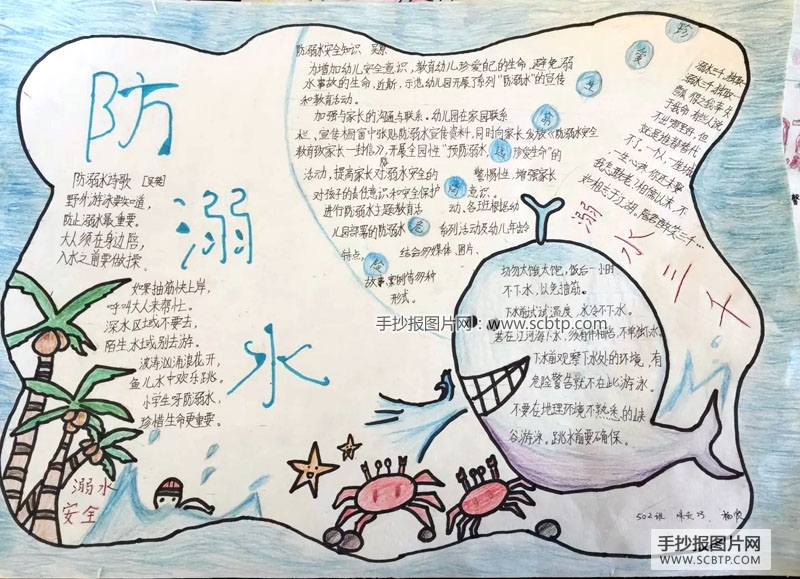 防
溺
水
防溺水诗歌
野外游泳要知道,
防止溺水最重要。
大人须在身边陪,
入水之前要做操。
如果抽筋快上岸,
呼叫大人来帮忙。
深水区域不要去,
陌生水域别去游。
波涛汹涌浪花开,
鱼儿水中欢乐跳。
小学生呀防溺水,
珍惜生命更重要。
溺水
安全
防溺水安全知识
为增加幼儿安全意识,教育幼儿珍爱自己的生命,避免溺
水事故的生命,近期,示范幼儿园开展了系列“防溺水”的宣传
和教育活动。
加强与家长的沟通与联系。幼儿园在家园联系
栏、宣传橱窗中张贴防溺水宣传资料,同时向家长发放《防溺水安全
教育致家长一封信》,开展全国性“预防溺水 珍爱生命”的
活动,提高家长对防溺水安全的 警惕性,增强家长
对孩子的责任意识和安全保护 意识。
进行防溺水主题教育活 动、各班根据幼
儿园部署的防溺水 系列活动及幼儿年龄
特点, 结合多媒体、图片、
故事、案例等多种
形式。
珍
爱
生
命
远
离
危
险
溺水三千
切勿太饿、太饱,饭后一小时
不下水,以免抽筋。
下水前试试温度,水冷不下水。
若在江河海下水,须有伴相陪,不单独下水。
下水前观察下水处的环境,有
危险警告就不在此游泳。
不要在地理环境不熟悉的峡
谷游泳。跳水前要确保。
手抄报图片网:www.scbtp.com
502班
手抄报图片网
WWW.SCBTP.COM